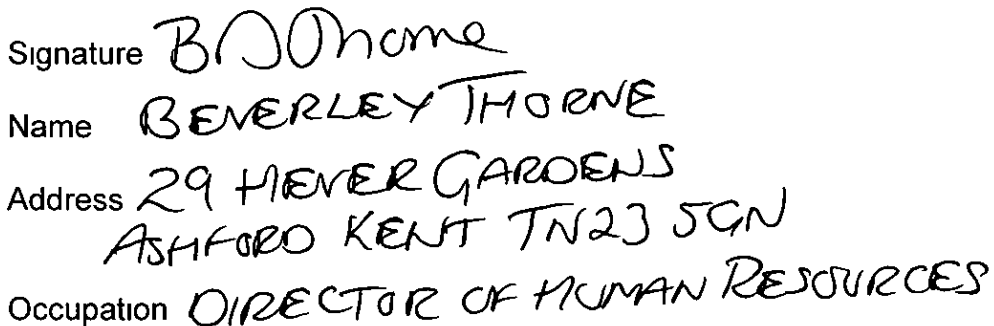 Signature B Thorne
Name BEVERLEY THORNE
Address 29 HEVER GARDENS
ASHFORD KENT TN23 5GN
Occupation DIRECTOR OF HUMAN RESOURCES